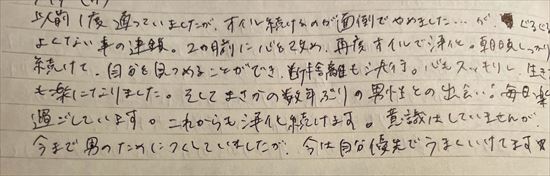 以前1度通っていましたが、オイル続けるのが面倒でやめました…が
よくない事の連鎖。2ヵ月前に心を改め、再度オイルで浄化。朝晩しっかり
続けて、自分を見つめることができ、断捨離も決行。心もスッキリし、生き
も楽になりました。そしてまさかの数年ぶりの男性との出会い。毎日楽
過ごしています。これからも浄化続けます。意識はしていませんが、
今まで男のためにつくしていましたが、今は自分優先でうまくいってます